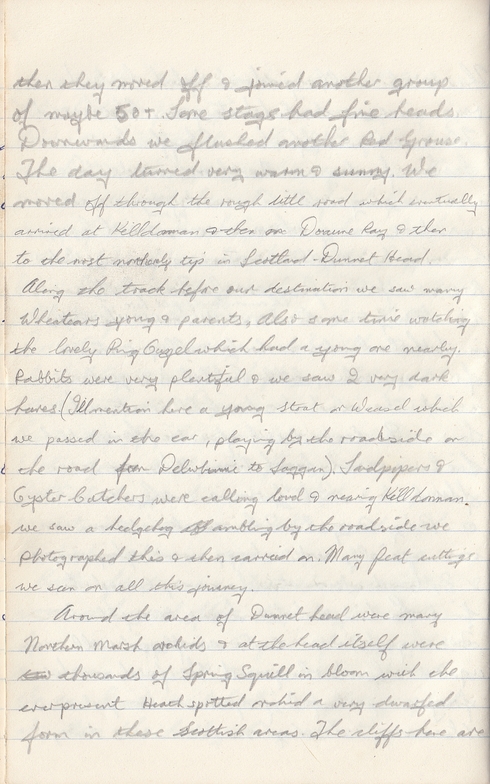 then they moved off & joined another group
of maybe 50+. Some stags had fine heads.
Downwards we flushed another Red Grouse.
The day turned very warm & sunny. We
moved off through the rough little road which eventually
arrived at Killdonnan & then on Dounne Ray & then
to the most northerly tip in Scotland - Dunnet Head.
Along the track before our destination we saw many
Wheatears young & parents, Also some time watching
the lovely Ring Ouzel which had a young one nearby.
Rabbits were very plentiful & we saw 2 very dark
hares. (I'll mention here a young stoat or Weasel which
we passed in the car, playing by the roadside on
the road from to Laggan). Sandpipers &
Oyster Catchers were calling loud & nearing Killdonnan.
we saw a hedgehog ambling by the roadside we
photographed this & then carried on. Many peat cuttings
we seen on all this journey.
Around the area of Dunnet head were many
Northern Marsh orchids & at the head itself were
thousands of Spring Squill in bloom with the
everpresent Heath spotted orchid a very dwarfed
form in these Scottish areas. The cliffs here are